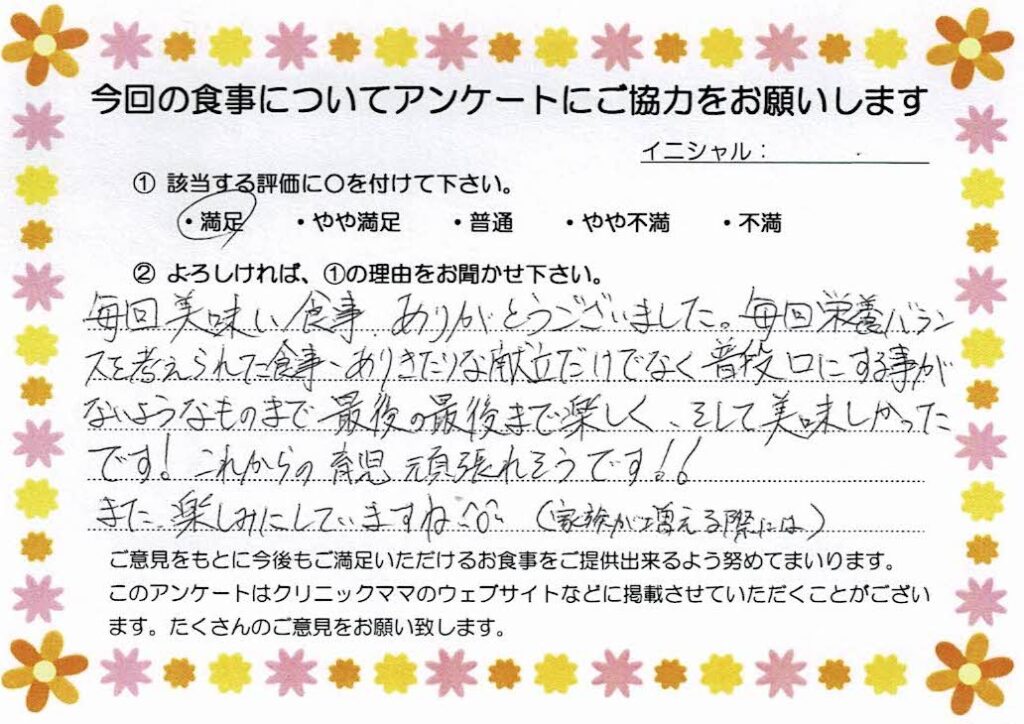 今回の食事についてアンケートにご協力をお願いします
イニシャル：
① 該当する評価に〇を付けて下さい。
・満足 ・やや満足 ・普通 ・やや不満 ・不満
② よろしければ、①の理由をお聞かせ下さい。
毎回美味しい食事 ありがとうございました。毎回栄養バラン
スを考えられた食事、ありきたりな献立だけでなく普段口にする事が
ないようなものまで最後の最後まで楽しく、そして美味しかった
です! これからの育児頑張れそうです!!
また楽しみにしていますね^o^ (家族が増える際には)
ご意見をもとに今後もご満足いただけるお食事をご提供出来るよう努めてまいります。
このアンケートはクリニックママのウェブサイトなどに掲載させていただくことがござい
ます。たくさんのご意見をお願い致します。